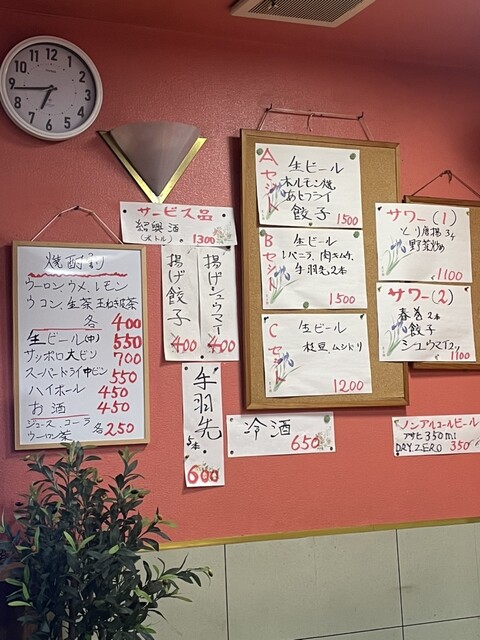 焼酎割り
ウーロン、ウメ、レモン
ウコン、生茶、玉ねぎ茶
各 400
生ビール(中) 550
サッポロ大ビン 700
スーパードライ中ビン 550
ハイボール 450
お酒 450
ジュース、コーラ
ウーロン茶 各250
サービス品
紹興酒
(ボトル) 1300
揚げシュウマイ
400
揚げ餃子
400
手羽先
5本
600
冷酒
650
Aセット
生ビール
ホルモン焼
あじフライ
餃子
1500
Bセット
生ビール
レバニラ、肉キムチ
手羽先2本
1500
Cセット
生ビール
枝豆、ムシドリ
1200
サワー(1)
とり唐揚3ケ
野菜炒め
1100
サワー(2)
春巻2本
餃子
シュウマイ2ケ
1100
ノンアルコールビール
アサヒ350ml
DRY.ZERO 350